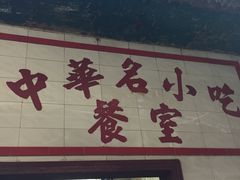 中華名小吃
餐室